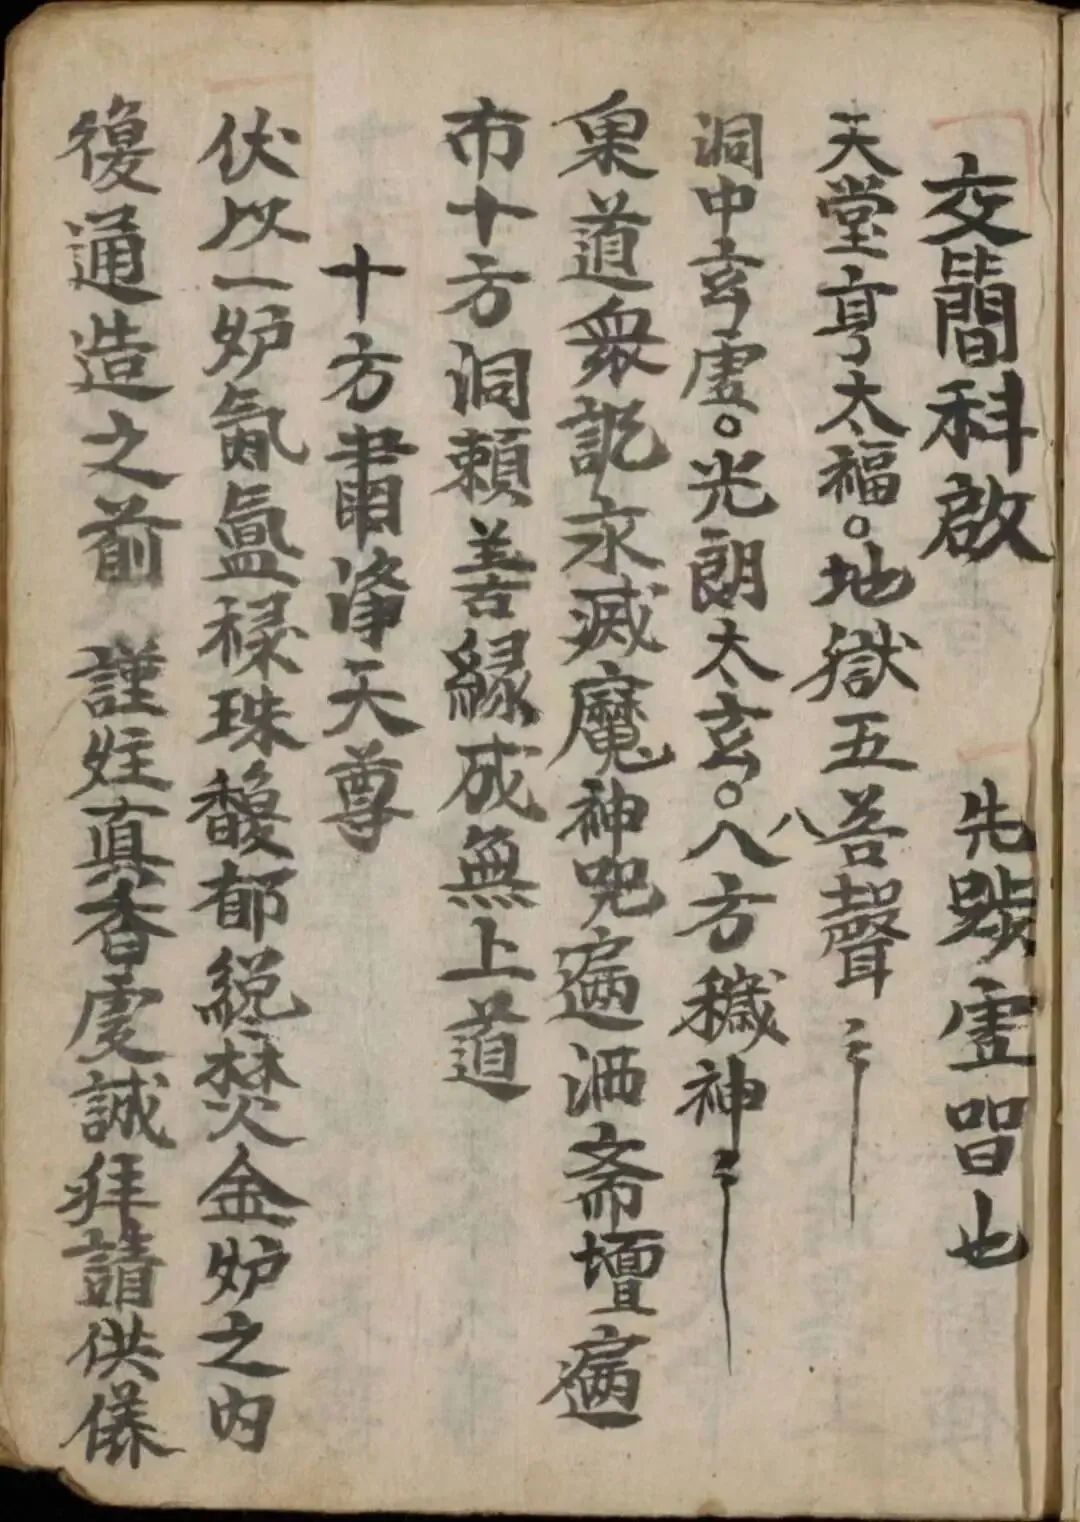 交簡科啟 先踄虛㽞也
天堂享太福。地獄五苦聲〻
洞中玄虛。光朗太玄。八八方穢神〻
稟道衆訖永滅魔神咒遍洒斋壇遍
市十方洞頼善緣成無上道
十方肅淨天尊
伏以一炉氤氳祿珠馥郁綐〻焚金炉之内
復通造之前 謹炷真香虔誠拜請供儀